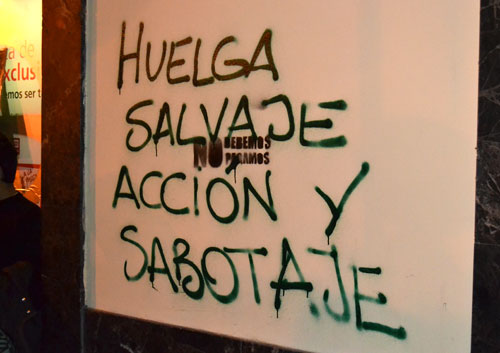 HUELGA
SALVAJE
NO DEBEMOS
PAGAMOS
ACCIÓN Y
SABOTAJE
ta de
xclus
emos ser t